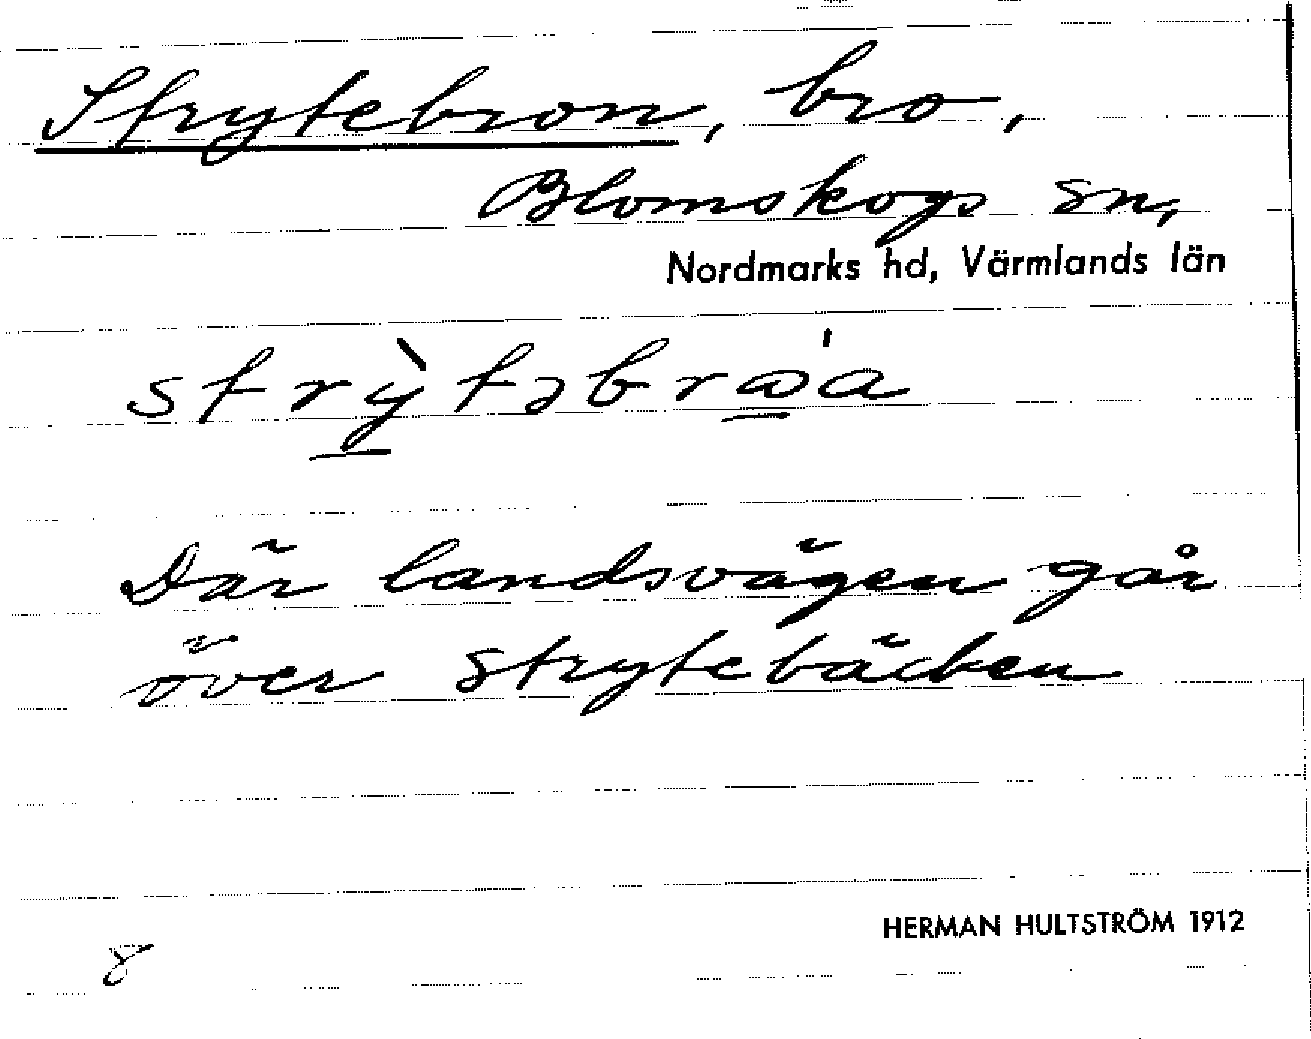 Strytebron, bro,
Blomskogs sn,
Nordmarks hd, Värmlands län
strỳtəbrɷ̀a
Där landsvägen går
över Strytebäcken
HERMAN HULTSTRÖM 1912
8